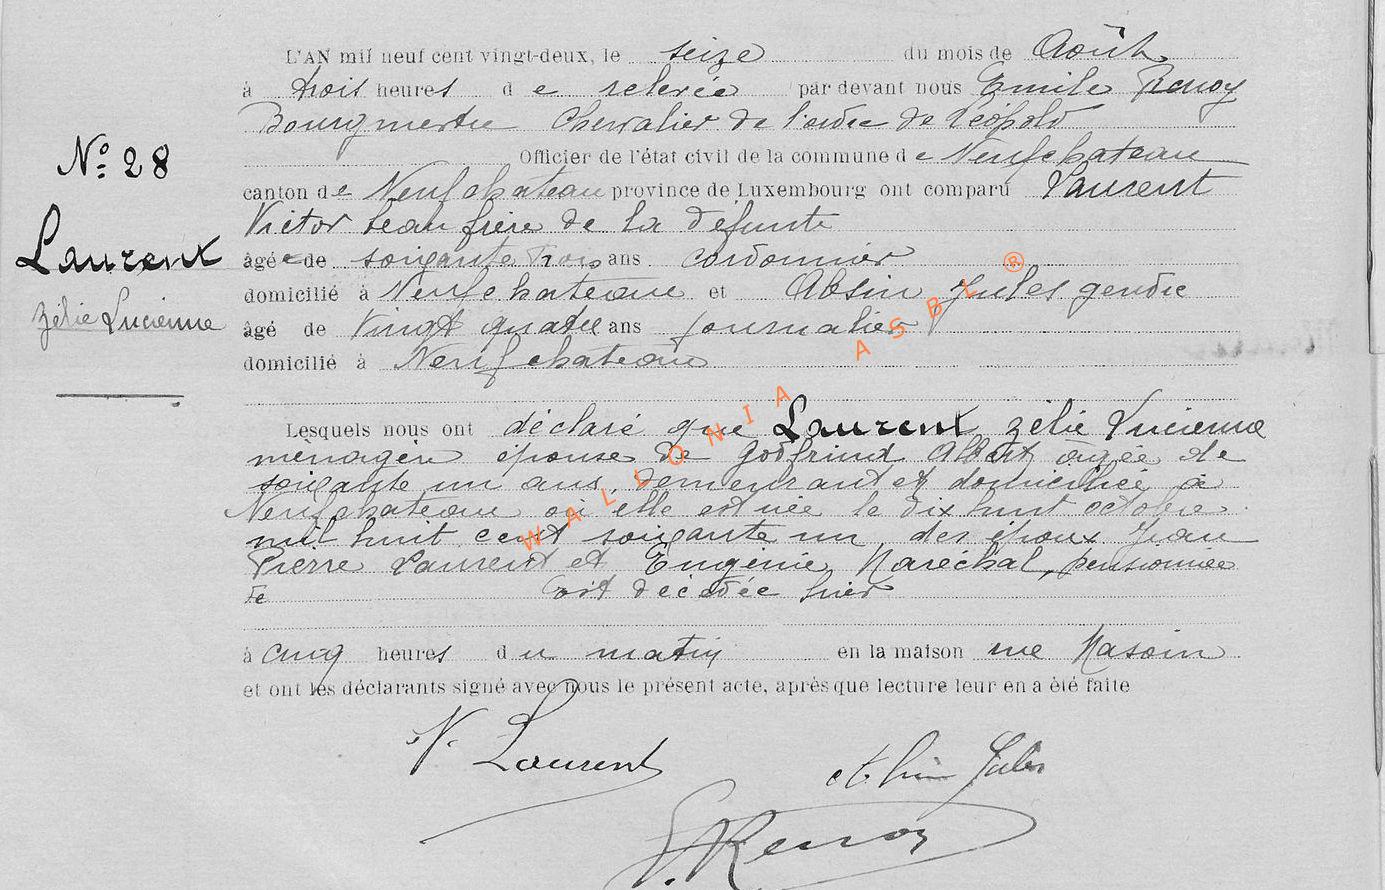 L'AN mil neuf cent vingt-deux, le seize du mois de Août
à trois heures de relevée par devant nous Emile Renoy
Bourgmestre Chevalier de l'ordre de Léopold
Officier de l'état civil de la commune de Neufchateau
N° 28
canton de Neufchateau province de Luxembourg ont comparu Laurent
Victor beau frère de la défunte
Laurent
âgé de soixante trois ans cordonnier
domicilié à Neufchateau et Absin Jules gendre
Zélie Lucienne
âgé de vingt quatre ans journalier
domicilié à Neufchateau
WALLONIA ASBL ®
Lesquels nous ont déclaré que Laurent, Zélie Lucienne
ménagère épouse de Godfrind Albert âgée de
soixante un ans, demeurant et domiciliée à
Neufchateau où elle est née le dix huit octobre
mil huit cent soixante un, des époux Jean
Pierre Laurent et Eugénie Maréchal, pensionnée
de est décédée hier
à cinq heures du matin en la maison rue
et ont les déclarants signé avec nous le présent acte, après que lecture leur en a été faite
V. Laurent
Absin Jules
E. Renoy